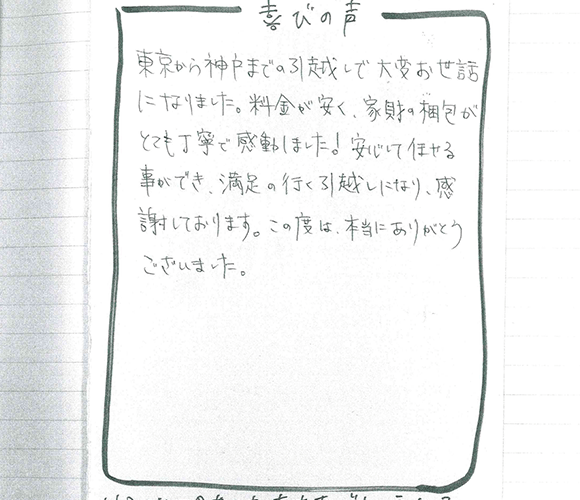 喜びの声
東京から神戸までの引越しで大変お世話
になりました。料金が安く、家財の梱包が
とても丁寧で感動しました！安心して任せる
事ができ、満足の行く引越しになり、感
謝しております。この度は、本当にありがとう
ございました。